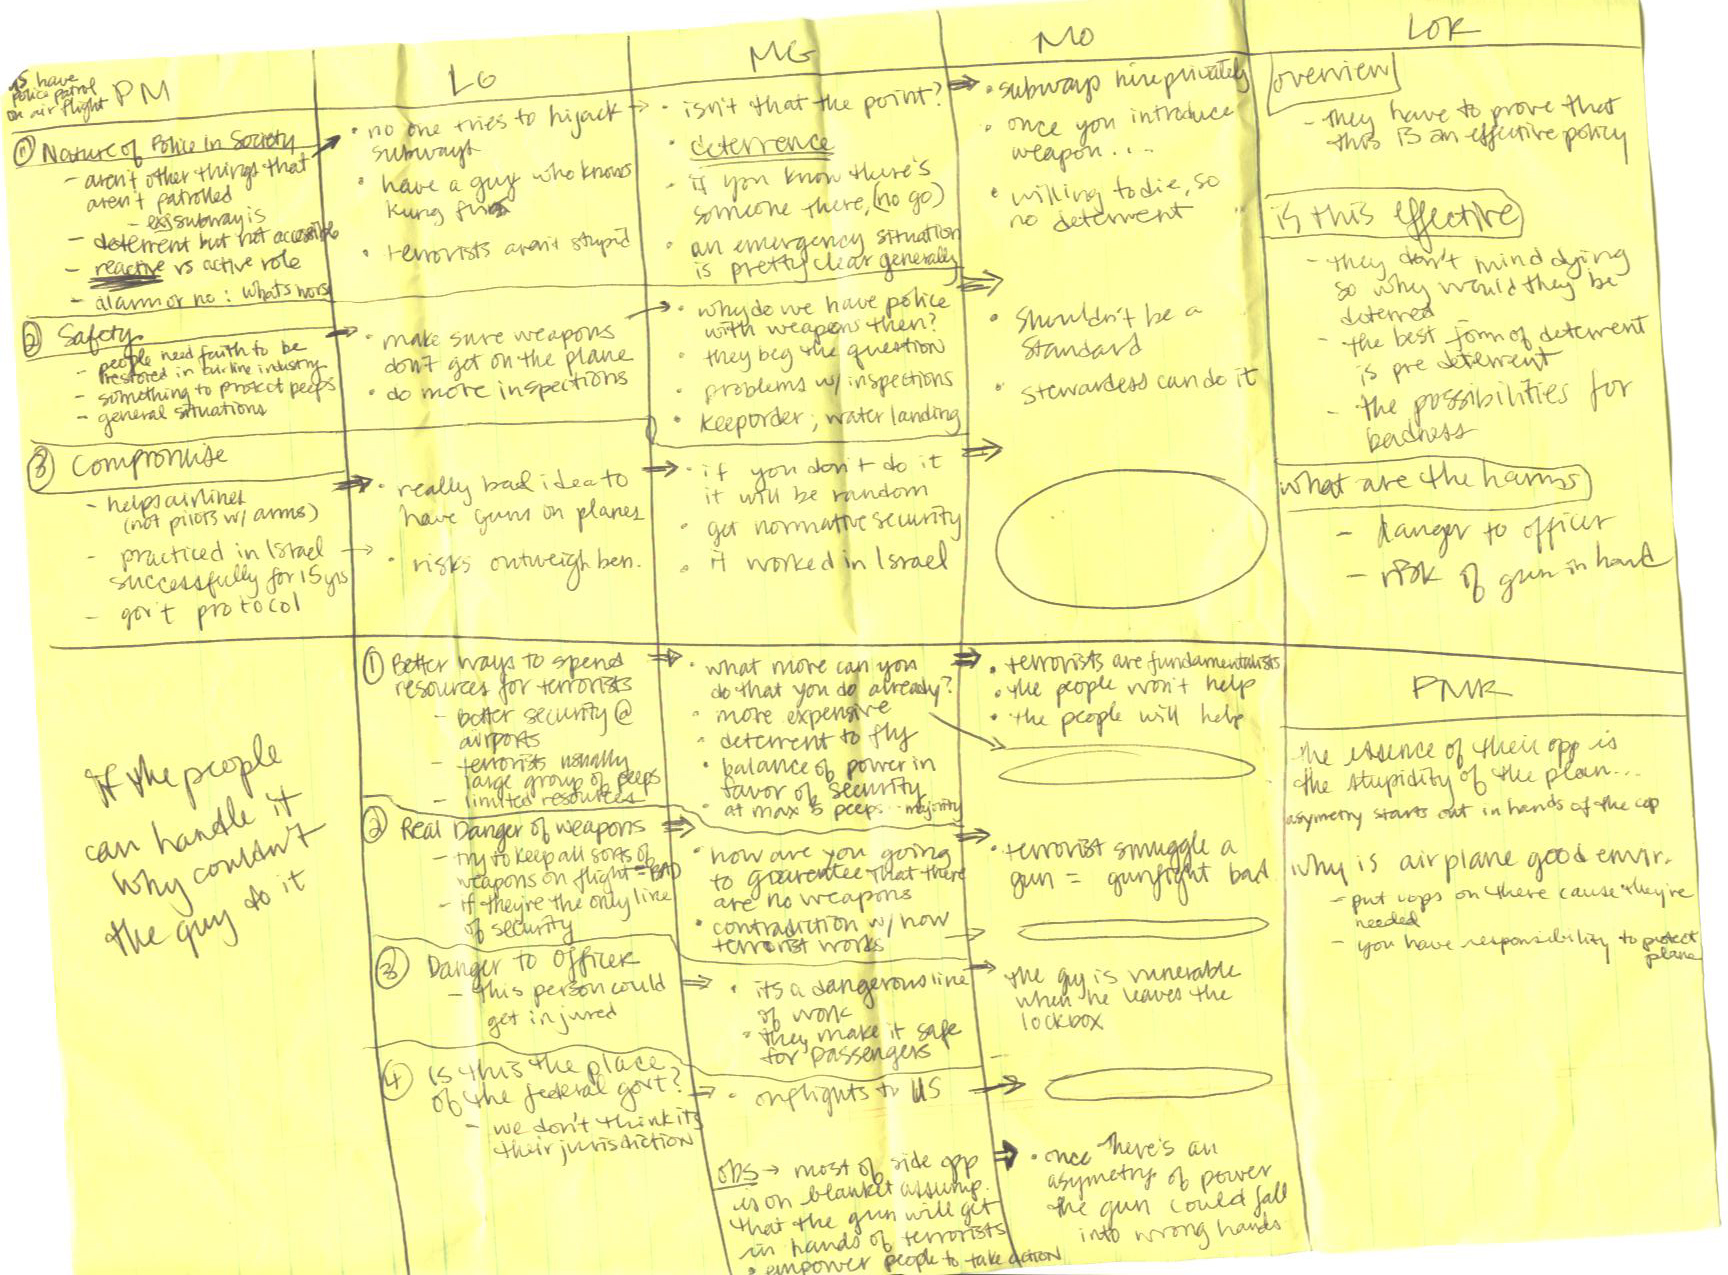 US have
police patrol
on air flight
PM
① Nature of Police in Society
- aren't other things that
aren't patrolled
- ex: subway is
- deterrent but not accessible
- reactive vs active role
- alarm or no: what's worse
② Safety
- people need faith to be
restored in airline industry
- something to protect peeps
- general situations
③ Compromise
- helps airlines
(not pilots w/ arms)
- practiced in Israel
successfully for 15 yrs
- gov't protocol
if the people
can handle it
why couldn't
the guy do it
LO
• no one tries to hijack
subways
• have a guy who knows
kung fu
• terrorists aren't stupid
• make sure weapons
don't get on the plane
• do more inspections
• really bad idea to
have guns on planes
• risks outweigh ben.
① Better ways to spend
resources for terrorists
- better security @
airports
- terrorists usually
large group of peeps
- limited resources
② Real Danger of weapons
- try to keep all sorts of
weapons on flight = BAD
- if they're the only line
of security
③ Danger to Officer
- this person could
get injured
④ Is this the place
of the federal gov't?
- we don't think its
their jurisdiction
MG
• isn't that the point?
• deterrence
- if you know there's
someone there, (no go)
• an emergency situation
is pretty clear generally
• why do we have police
with weapons then?
• they beg the question
• problems w/ inspections
• keep order; water landing
• if you don't do it
it will be random
• get normative security
• it worked in Israel
• what more can you
do that you do already?
• more expensive
• deterrent to fly
• balance of power in
favor of security
• at max 5 peeps.. majority
• how are you going
to guarentee that there
are no weapons
• contradiction w/ how
terrorist works
• its a dangerous line
of work
• they make it safe
for passengers
• on flights to US
obs → most of side opp
is on blanket assump.
that the gun will get
in hands of terrorists
• empower people to take action
MO
• subways hire privately
• once you introduce
weapon....
• willing to die, so
no deterrent
• shouldn't be a
standard
• stewardess can do it
• terrorists are fundamentalists
• the people won't help
• the people will help
• terrorist smuggle a
gun = gunfight bad
the guy is vunerable
when he leaves the
lockbox
• once there's an
asymmetry of power
the gun could fall
into wrong hands
LOR
overview
- they have to prove that
this is an effective policy
is this effective
- they don't mind dying
so why would they be
deterred
- the best form of deterrent
is pre deterrent
- the possibilities for
badness
what are the harms
- danger to officer
- risk of gun in hand
PMR
the essence of their opp is
the stupidity of the plan...
asymetry starts out in hands of the cop
why is airplane good envir.
- put cops on there cause they're
needed
- you have responsibility to protect
plane